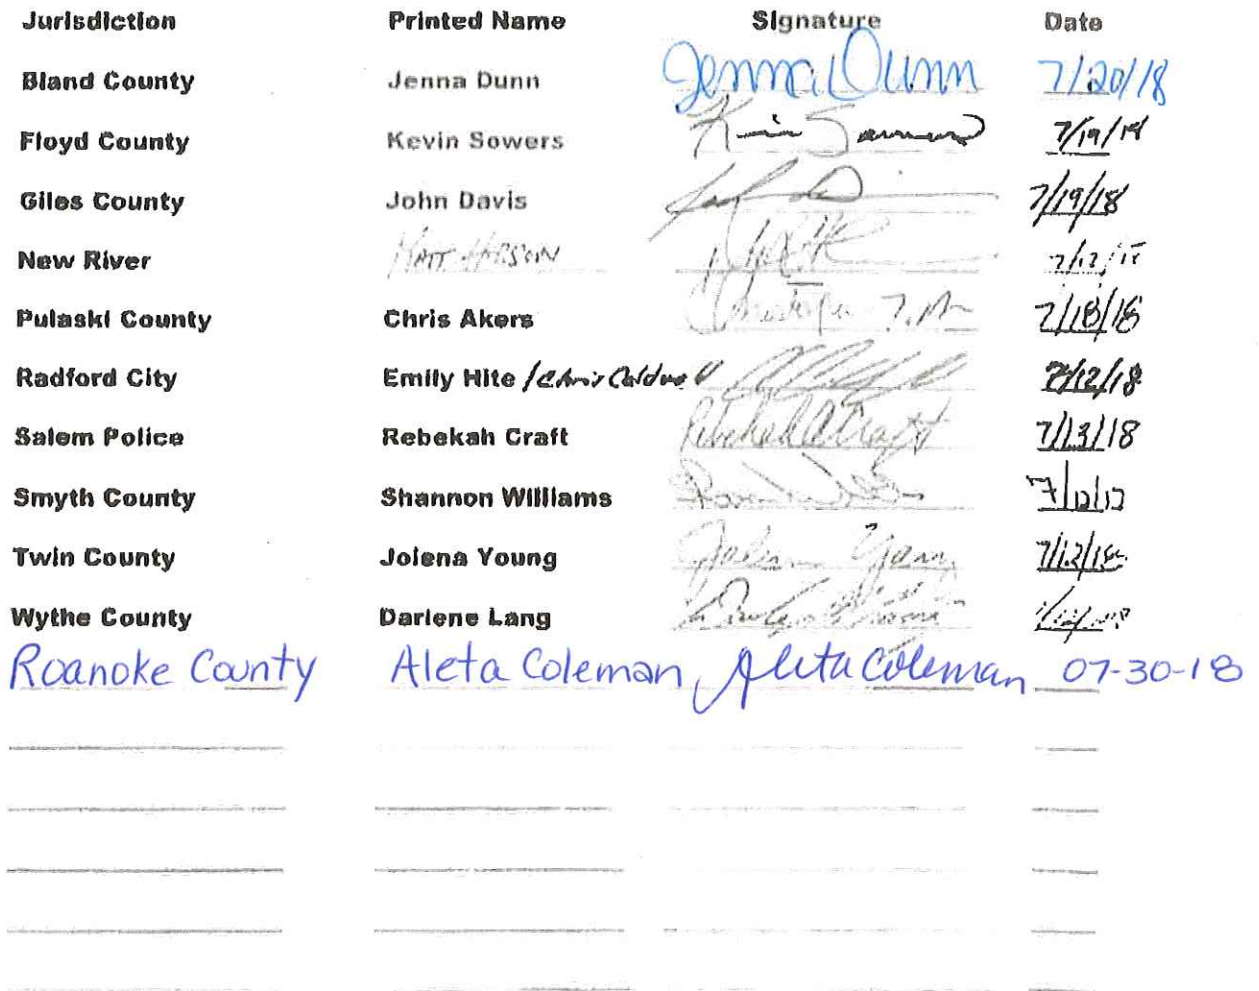 Jurisdiction Printed Name Signature Date
Bland County Jenna Dunn Jenna Dunn 7/20/18
Floyd County Kevin Sowers Kevin Sowers 7/19/18
Giles County John Davis 7/19/18
New River Matt
Pulaski County Chris Akers 7/18/18
Radford City Emily Hite / Chris Caldwell 7/12/18
Salem Police Rebekah Craft Rebekah A Craft 7/13/18
Smyth County Shannon Williams
Twin County Jolena Young Jolena Young 7/12/18
Wythe County Darlene Lang
Roanoke County Aleta Coleman, Aleta Coleman 07-30-18